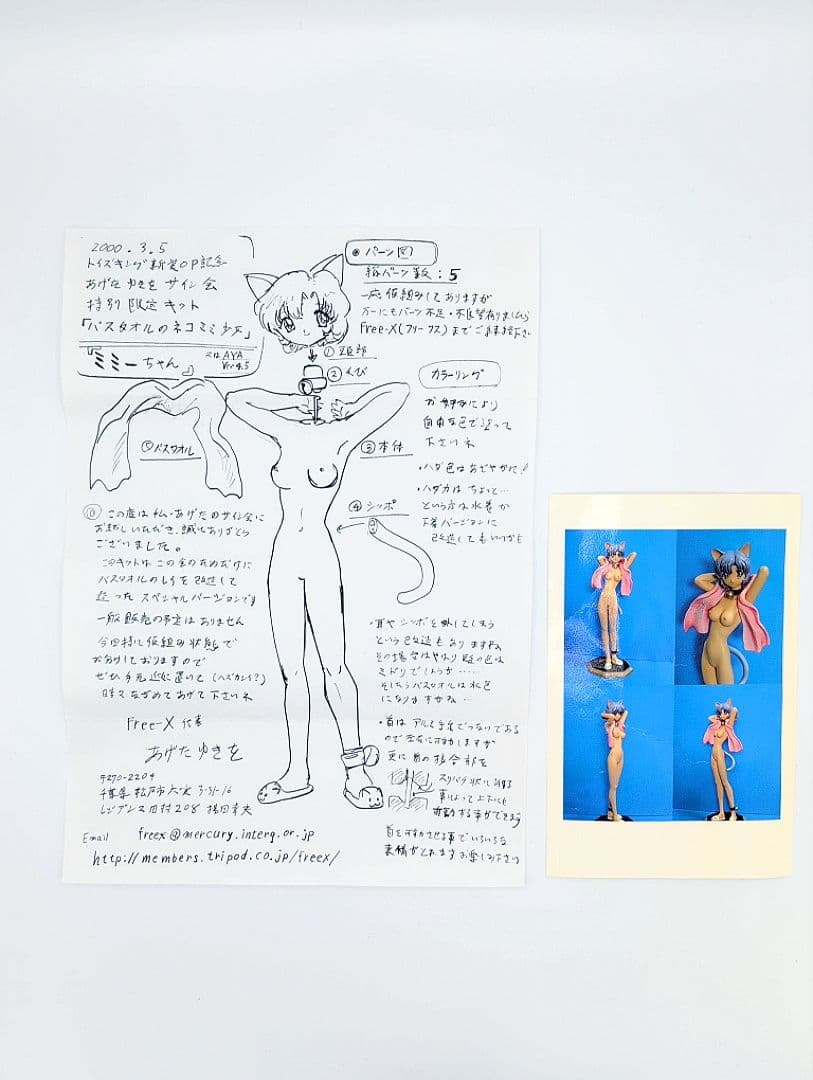 2000.3.5
トイズキング新装OP記念
あげた ゆきを サイン 会
特別 限定 キット
「バスタオルのネコミミ少女」
『ミミーちゃん』
AYA
Ver.4.5
⑤バスタオル
◎ この度は私・あげたのサイン会に
お越しいただき、誠にありがとう
ございました。
このキットはこの会のためだけに
バスタオルのレイを改造して
造ったスペシャルバージョンです
一般販売の予定はありません
今回特に仮組み状態で
お分けしておりますので
ぜひ手元近に置いて(ハズカシイ?)
時々ながめてあげて下さいネ
Free-X 代表
あげた ゆきを
〒270-2204
千葉県松戸市六実3-31-16
レジデンス田村208
Email freex@mercury.interq.or.jp
http://members.tripod.co.jp/freex/
◉ パーツ図
総パーツ数:5
一応仮組みしてありますが
万一にもパーツ不足・不良等有りましたら
Free-X(フリークス)までご連絡下さい
①頭部
②くび
③本体
④シッポ
カラーリング
お好みにより
自由な色で塗って
下さいネ
・ハダ色はあざやかに!
・ハダカはちょっと…
という方は水着か
下着バージョンに
改造してもいいかも
・耳やシッポを外してしまう
という改造もありますね
その場合はやはり髪の色は
ミドリでしょうか……
そしたらバスタオルは水色
になりますかね…
・首はアルミ線でつないである
ので左右に可動しますが
更に首の接合部を
スリバチ状に削る
事によって上下にも
可動する事ができます
首を可動させる事でいろいろな
表情がとれますお楽しみ下さい